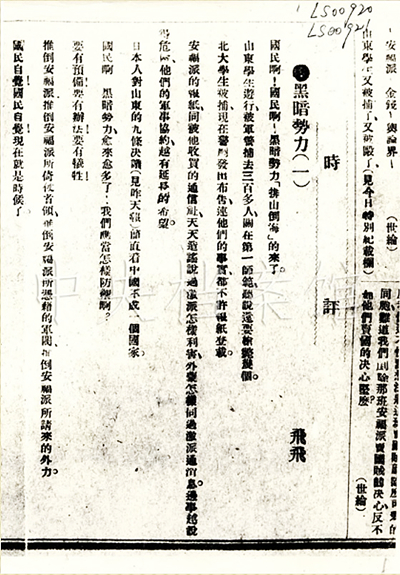 LS00920
LS00921
安福派　金錢！輿論界！　（世綸）
山東學生又被捕了、又被毆了（見今日特別紀載欄）
同胞難道我們剷除那班安福派賣國賊的决心、反不
如他們賣國的决心麼？
（世綸）
時評
黑暗勢力（一）　飛飛
國民啊！國民啊！黑暗勢力、「排山倒海」的來了。
山東學生遊行被軍警捕去三百多人、關在第一師範、聽說還要槍斃幾個。
北大學生被捕、現在警廳發出布告、連他們的事實都不許報紙登載。
安福派的報紙、同被他收買的通信社、天天造謠、說過激派怎樣利害、外蒙怎樣同過激派通消息、邊事越說
得危險、他們的軍事協約越有延長的希望。
日本人對山東的九條決議（見昨天報）簡直看中國不成一個國家。
國民啊！黑暗勢力、愈來愈多了！我們應當怎樣防禦啊？
要有預備！要有辦法！要有犧牲！
推倒安福派、推倒安福派所倚仗首領、推倒安福派所憑藉的軍閥、推倒安福派所請來的外力。
國民自覺！國民自覺！現在就是時候了。
中央档案馆